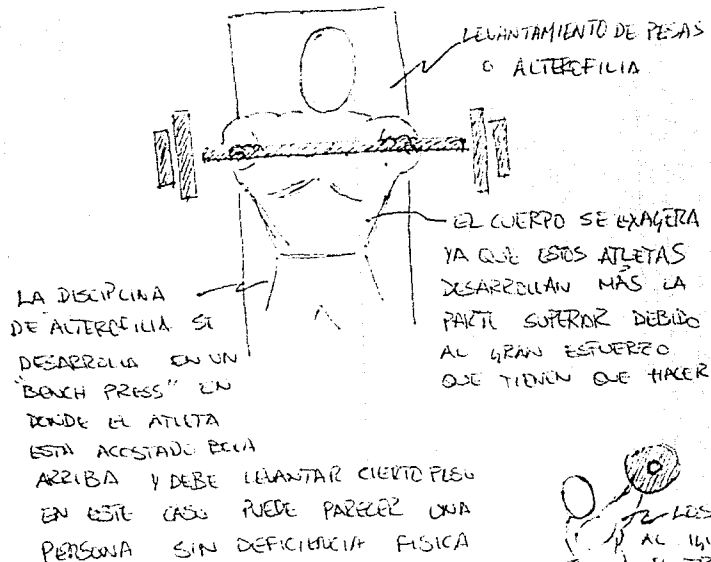 LEVANTAMIENTO DE PESAS
O ALTEROFILIA
EL CUERPO SE EXAGERA
YA QUE ESTOS ATLETAS
DESARROLLAN MÁS LA
PARTE SUPERIOR DEBIDO
AL GRAN ESFUERZO
QUE TIENEN QUE HACER
LA DISCIPLINA
DE ALTEROFILIA SE
DESARROLLA EN UN
"BENCH PRESS" EN
DONDE EL ATLETA
ESTA ACOSTADO BOCA
ARRIBA Y DEBE LEVANTAR CIERTO PESO
EN ESTE CASO PUEDE PARECER UNA
PERSONA SIN DEFICIENCIA FISICA
LOS
AL